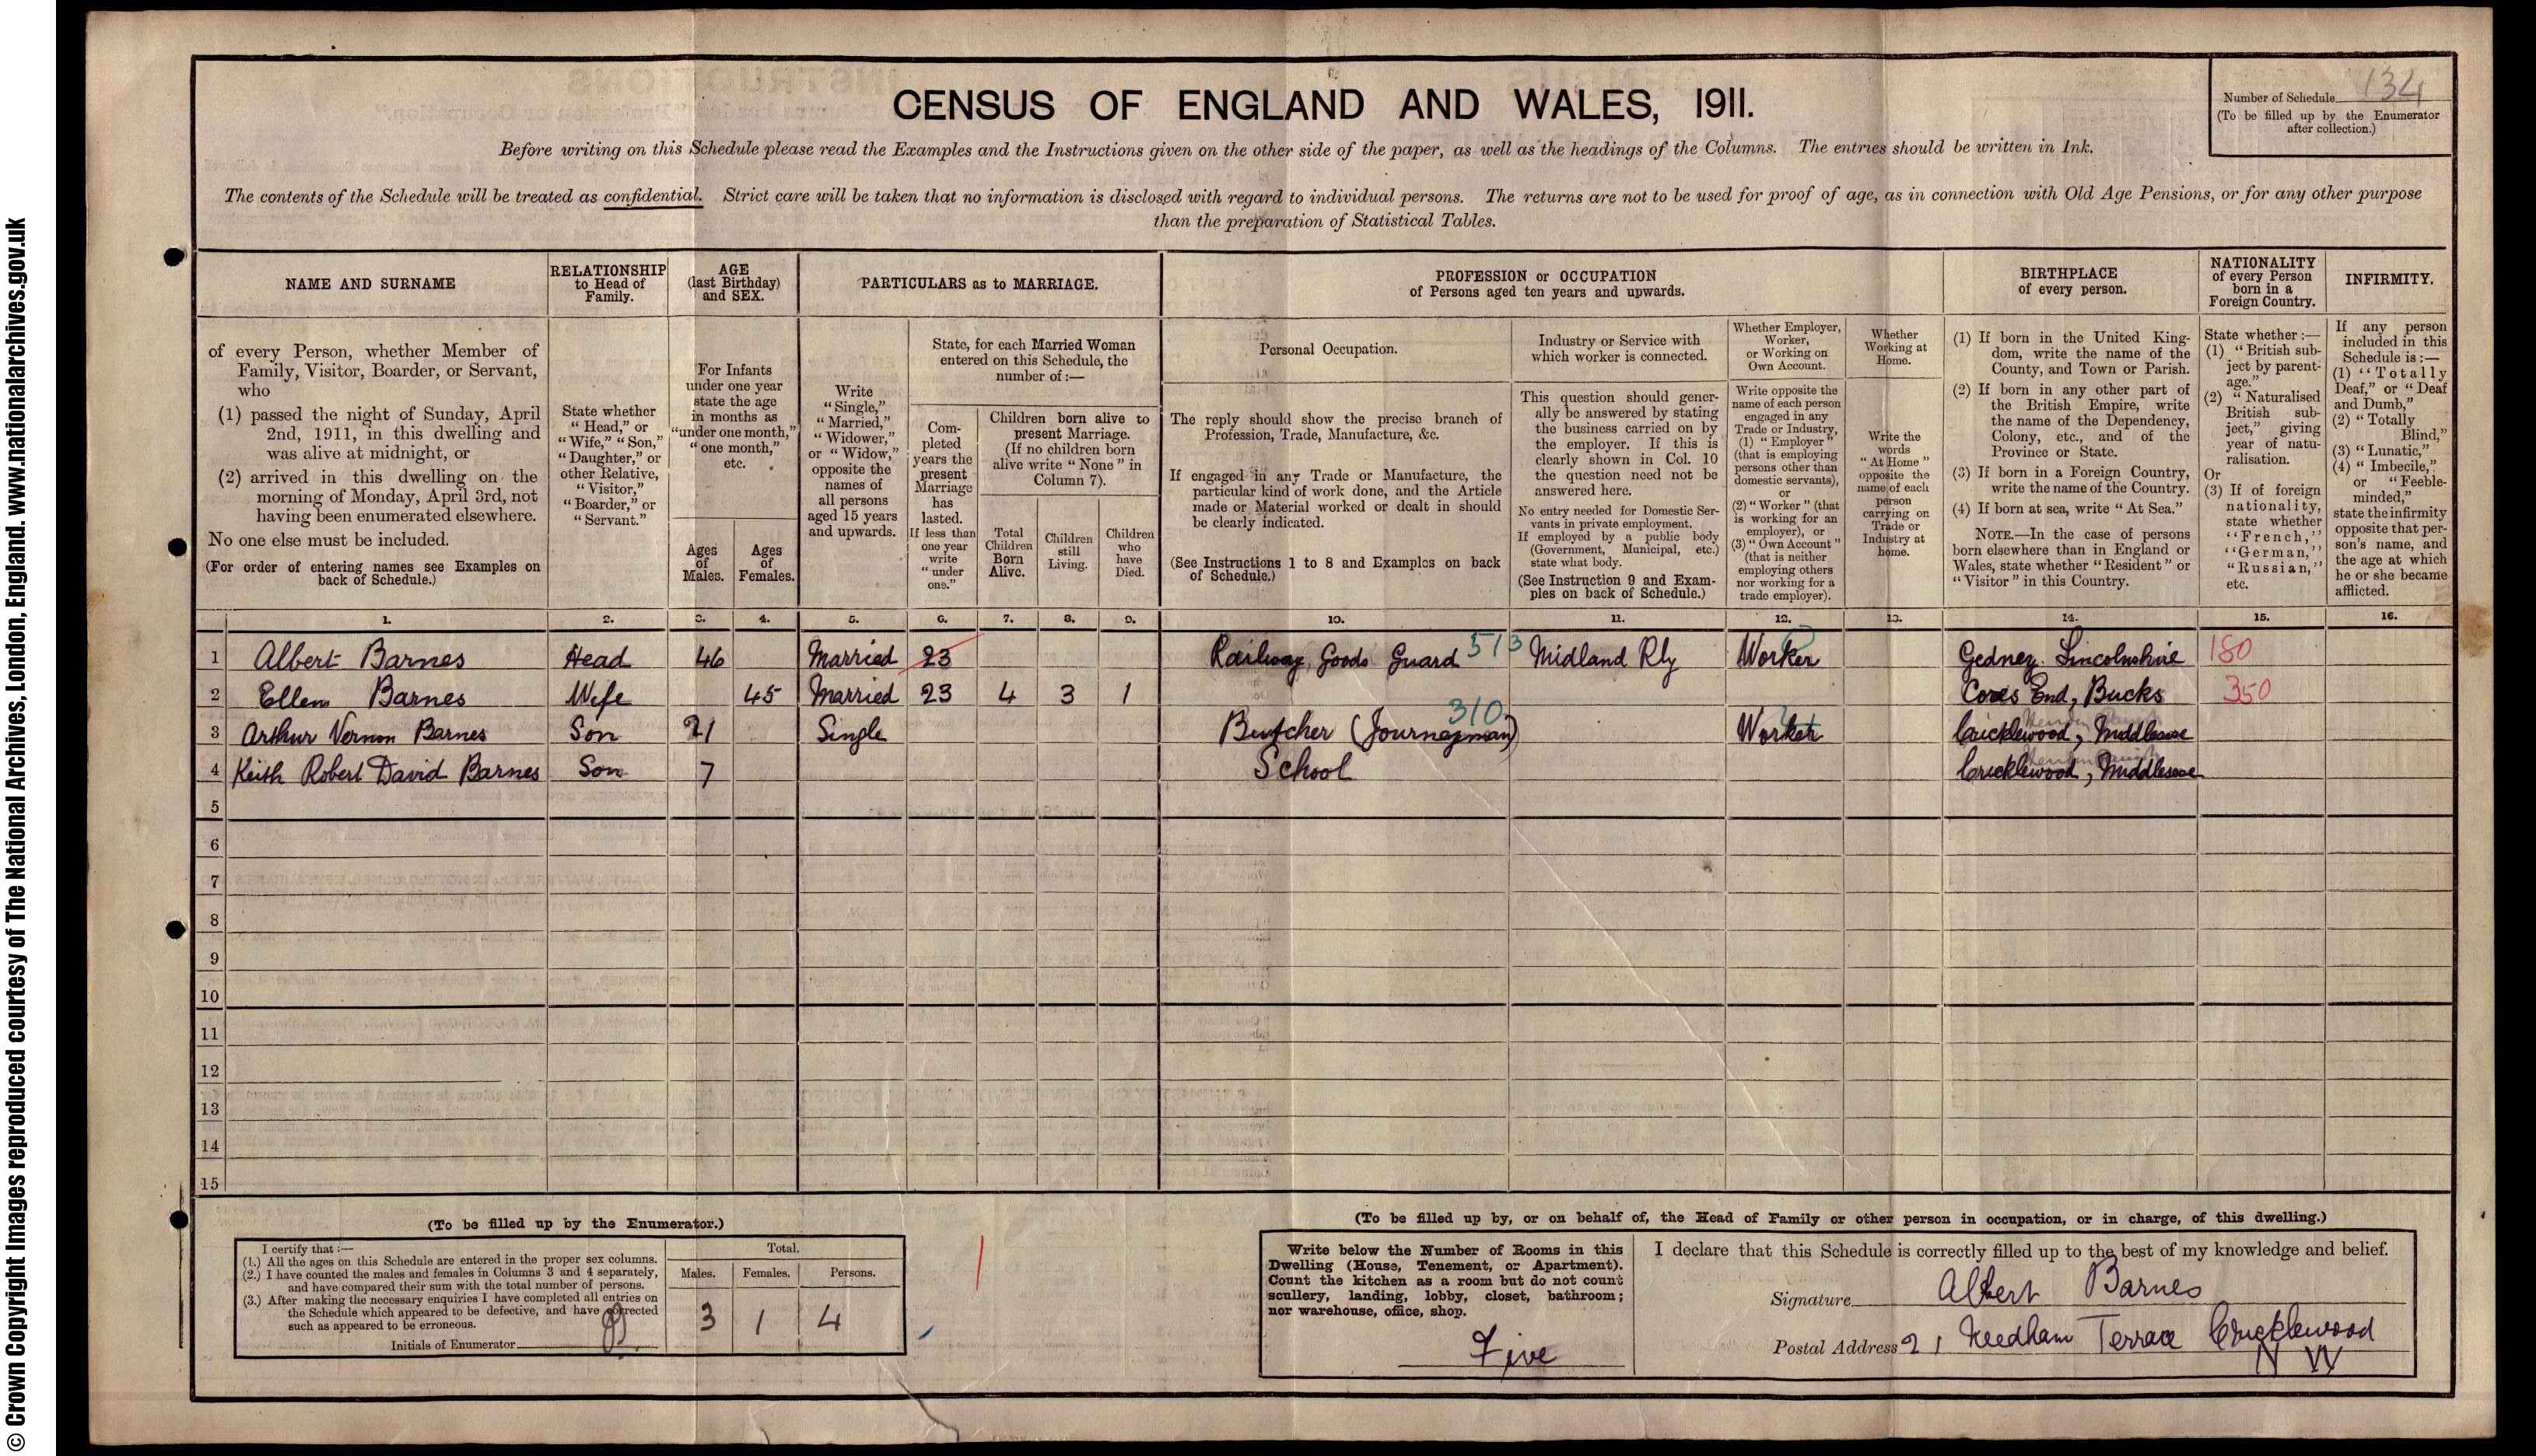 © Crown Copyright Images reproduced courtesy of The National Archives, London, England. www.nationalarchives.gov.uk
CENSUS OF ENGLAND AND WALES, 1911.
Number of Schedule 134
(To be filled up by the Enumerator
after collection.)
Before writing on this Schedule please read the Examples and the Instructions given on the other side of the paper, as well as the headings of the Columns. The entries should be written in Ink.
The contents of the Schedule will be treated as confidential. Strict care will be taken that no information is disclosed with regard to individual persons. The returns are not to be used for proof of age, as in connection with Old Age Pensions, or for any other purpose
than the preparation of Statistical Tables.
NAME AND SURNAME
RELATIONSHIP
to Head of
Family.
AGE
(last Birthday)
and SEX.
PARTICULARS as to MARRIAGE.
PROFESSION or OCCUPATION
of Persons aged ten years and upwards.
BIRTHPLACE
of every person.
NATIONALITY
of every Person
born in a
Foreign Country.
INFIRMITY.
of every Person, whether Member of
Family, Visitor, Boarder, or Servant,
who
(1) passed the night of Sunday, April
2nd, 1911, in this dwelling and
was alive at midnight, or
(2) arrived in this dwelling on the
morning of Monday, April 3rd, not
having been enumerated elsewhere.
No one else must be included.
(For order of entering names see Examples on
back of Schedule.)
State whether
"Head," or
"Wife," "Son,"
"Daughter," or
other Relative,
"Visitor,"
"Boarder," or
"Servant."
For Infants
under one year
state the age
in months as
"under one month,"
"one month,"
etc.
Ages
of
Males.
Ages
of
Females.
Write
"Single,"
"Married,"
"Widower,"
or "Widow,"
opposite the
names of
all persons
aged 15 years
and upwards.
State, for each Married Woman
entered on this Schedule, the
number of :—
Com-
pleted
years the
present
Marriage
has
lasted.
If less than
one year
write
"under
one."
Children born alive to
present Marriage.
(If no children born
alive write "None" in
Column 7).
Total
Children
Born
Alive.
Children
still
Living.
Children
who
have
Died.
Personal Occupation.
The reply should show the precise branch of
Profession, Trade, Manufacture, &c.
If engaged in any Trade or Manufacture, the
particular kind of work done, and the Article
made or Material worked or dealt in should
be clearly indicated.
(See Instructions 1 to 8 and Examples on back
of Schedule.)
Industry or Service with
which worker is connected.
This question should gener-
ally be answered by stating
the business carried on by
the employer. If this is
clearly shown in Col. 10
the question need not be
answered here.
No entry needed for Domestic Ser-
vants in private employment.
If employed by a public body
(Government, Municipal, etc.)
state what body.
(See Instruction 9 and Exam-
ples on back of Schedule.)
Whether Employer,
Worker,
or Working on
Own Account.
Write opposite the
name of each person
engaged in any
Trade or Industry,
(1) "Employer"
(that is employing
persons other than
domestic servants),
or
(2) "Worker" (that
is working for an
employer), or
(3) "Own Account"
(that is neither
employing others
nor working for a
trade employer).
Whether
Working at
Home.
Write the
words
"At Home"
opposite the
name of each
person
carrying on
Trade or
Industry at
home.
(1) If born in the United King-
dom, write the name of the
County, and Town or Parish.
(2) If born in any other part of
the British Empire, write
the name of the Dependency,
Colony, etc., and of the
Province or State.
(3) If born in a Foreign Country,
write the name of the Country.
(4) If born at sea, write "At Sea."
NOTE.—In the case of persons
born elsewhere than in England or
Wales, state whether "Resident" or
"Visitor" in this Country.
State whether :—
(1) "British sub-
ject by parent-
age."
(2) "Naturalised
British sub-
ject," giving
year of natu-
ralisation.
Or
(3) If of foreign
nationality,
state whether
"French,"
"German,"
"Russian,"
etc.
If any person
included in this
Schedule is :—
(1) "Totally
Deaf," or "Deaf
and Dumb,"
(2) "Totally
Blind,"
(3) "Lunatic,"
(4) "Imbecile,"
or "Feeble-
minded,"
state the infirmity
opposite that per-
son's name, and
the age at which
he or she became
afflicted.
1. 2. 3. 4. 5. 6. 7. 8. 9. 10. 11. 12. 13. 14. 15. 16.
1 Albert Barnes Head 46 Married 23 Railway Goods Guard 513 Midland Rly Worker Gedney Lincolnshire 180
2 Ellen Barnes Wife 45 Married 23 4 3 1 Cores End, Bucks 350
3 Arthur Vernon Barnes Son 21 Single Butcher (Journeyman) 310 Worker Cricklewood, Middlesex
4 Keith Robert David Barnes Son 7 School Cricklewood, Middlesex
5
6
7
8
9
10
11
12
13
14
15
(To be filled up by the Enumerator.)
I certify that :—
(1.) All the ages on this Schedule are entered in the proper sex columns.
(2.) I have counted the males and females in Columns 3 and 4 separately,
and have compared their sum with the total number of persons.
(3.) After making the necessary enquiries I have completed all entries on
the Schedule which appeared to be defective, and have corrected
such as appeared to be erroneous.
Initials of Enumerator
Total.
Males. Females. Persons.
3 1 4
(To be filled up by, or on behalf of, the Head of Family or other person in occupation, or in charge, of this dwelling.)
Write below the Number of Rooms in this
Dwelling (House, Tenement, or Apartment).
Count the kitchen as a room but do not count
scullery, landing, lobby, closet, bathroom;
nor warehouse, office, shop.
Five
I declare that this Schedule is correctly filled up to the best of my knowledge and belief.
Signature Albert Barnes
Postal Address 21 Needham Terrace Cricklewood
N W